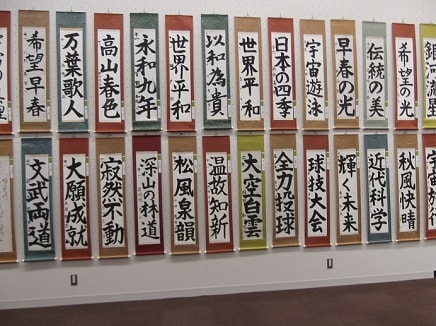 希望早春
万葉歌人
高山春色
永和九年
世界平和
以和為貴
世界平和
日本の四季
宇宙遊泳
早春の光
伝統の美
希望の光
銀河流星
文武両道
大願成就
寂然不動
深山の林道
松風泉韻
温故知新
大空白雲
全力投球
球技大会
輝く未来
近代科学
秋風快晴
宇宙旅行